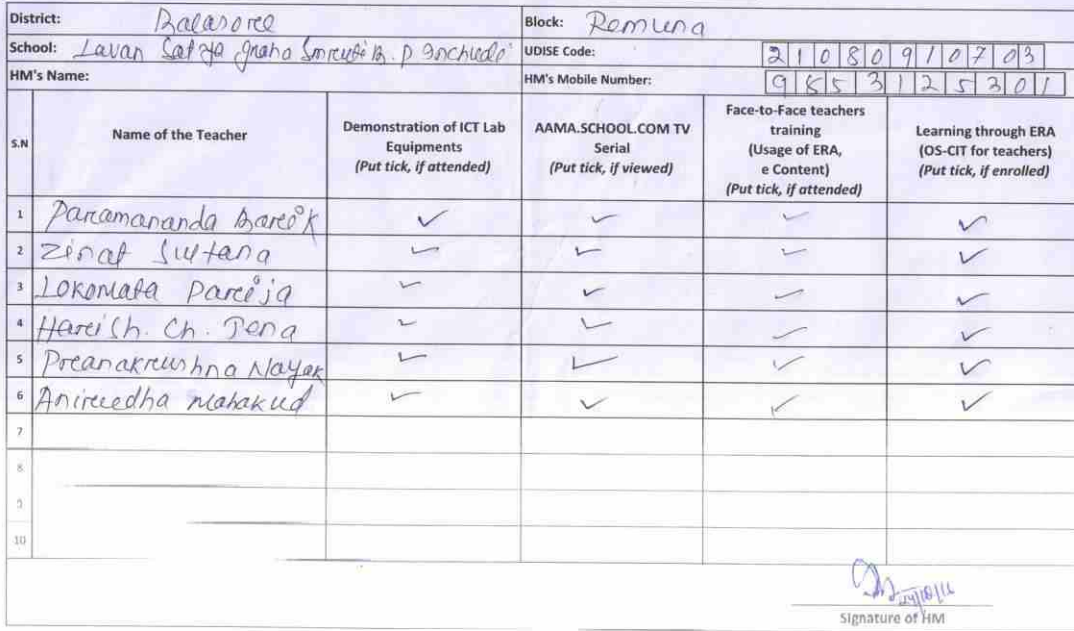 District: Balasore Block: Remuna
School: Lavan Satya graha Smruti B. P Inchudi UDISE Code: 21080910703
HM's Name: HM's Mobile Number: 9853125301
S.N Name of the Teacher Demonstration of ICT Lab Equipments (Put tick, if attended) AAMA.SCHOOL.COM TV Serial (Put tick, if viewed) Face-to-Face teachers training (Usage of ERA, e Content) (Put tick, if attended) Learning through ERA (OS-CIT for teachers) (Put tick, if enrolled)
1 Paramananda Barik ✓ ✓ ✓ ✓
2 Zinat Sultana ✓ ✓ ✓ ✓
3 Lokomata Parija ✓ ✓ ✓ ✓
4 Harish. Ch. Jena ✓ ✓ ✓ ✓
5 Pranakrushna Nayak ✓ ✓ ✓ ✓
6 Anirudha Mahakud ✓ ✓ ✓ ✓
7
8
9
10
Signature of HM